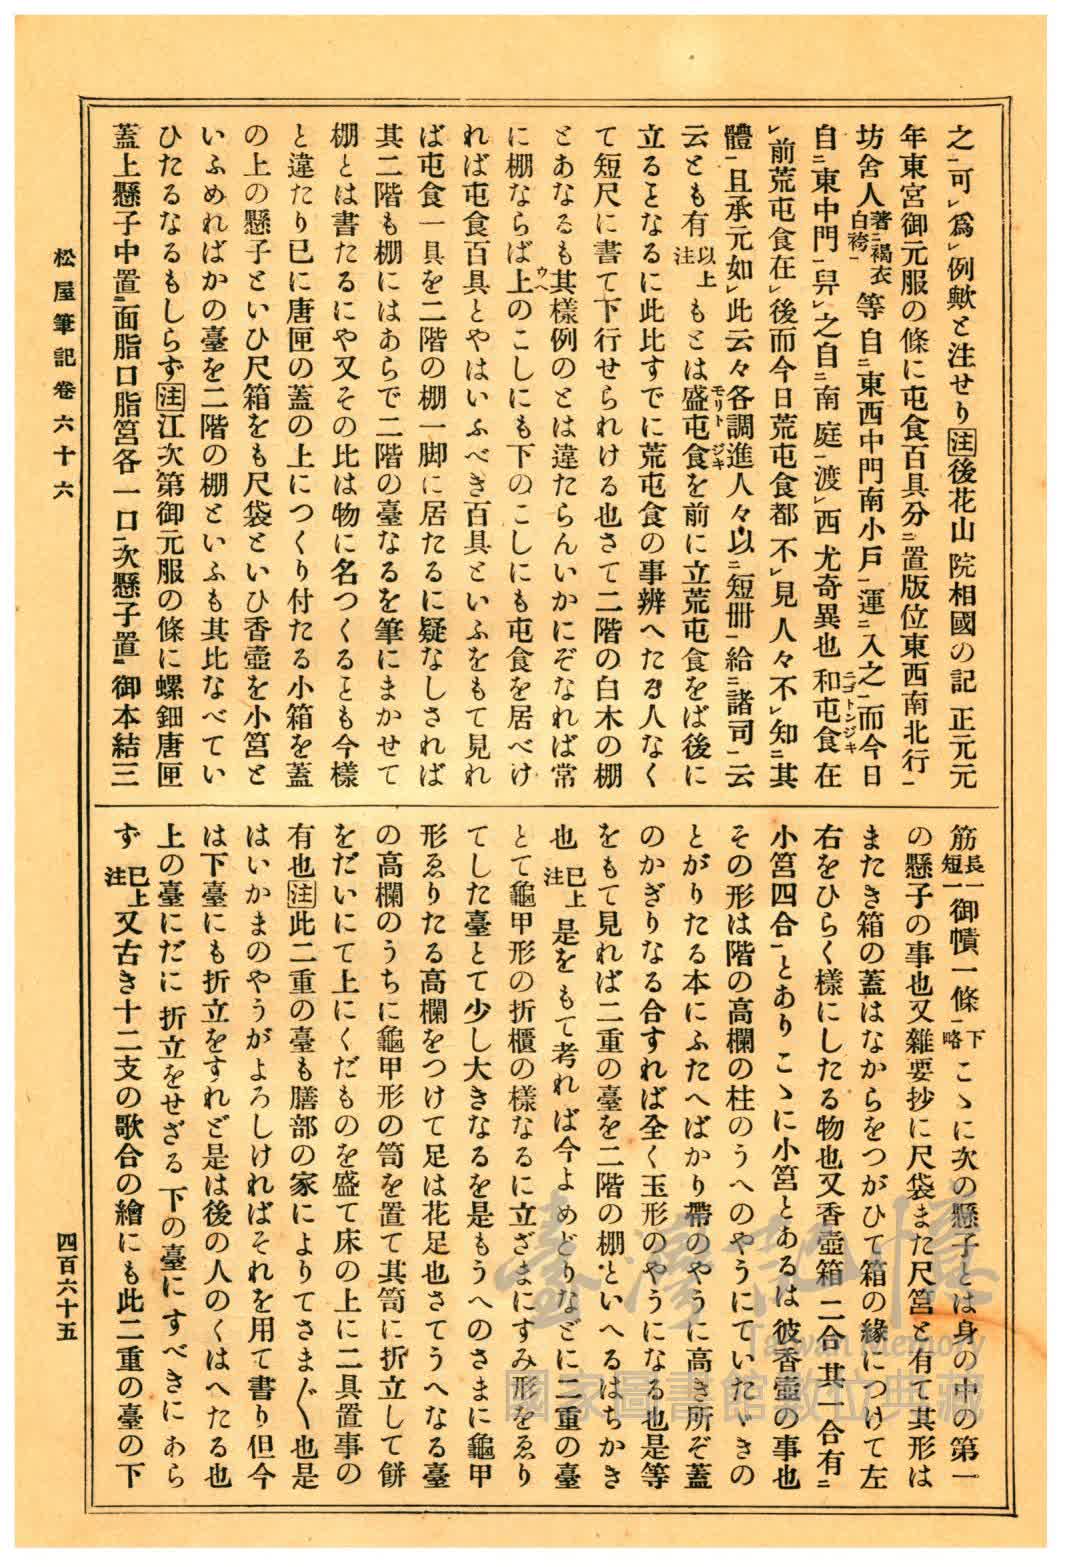 之一可㆑爲㆑例歟と注せり注後花山院相國の記正元元
年東宮御元服の條に屯食百具分㆓置版位東西南北行㆒
坊舍人著㆓褐衣白袴㆒等自㆓東西中門南小戶㆒運㆓入之㆒而今日
自㆓東中門㆒舁㆑之自㆓南庭㆒渡㆑西尤奇異也和屯食ニゴトンジキ在
㆑前荒屯食在㆑後而今日荒屯食都不㆑見人々不㆑知㆓其
體㆒且承元如㆑此云々各調進人々以㆓短册㆒給㆓諸司㆒云
云とも有以上注もとは盛屯食モリトジキを前に立荒屯食をば後に
立るとなるに此比すでに荒屯食の事辨へたる人なく
て短尺に書て下行せられける也さて二階の白木の棚
とあなるも其樣例のとは違たらんいかにぞなれば常
に棚ならば上ウヘのこしにも下のこしにも屯食を居べけ
れば屯食百具とやはいふべき百具といふをもて見れ
ば屯食一具を二階の棚一脚に居たるに疑なしされば
其二階も棚にはあらで二階の臺なるを筆にまかせて
棚とは書たるにや又その比は物に名つくるとも今樣
と違たり已に唐匣の蓋の上につくり付たる小箱を蓋
の上の懸子といひ尺箱をも尺袋といひ香壺を小筥と
いふめればかの臺を二階の棚といふも其比なべてい
ひたるなるもしらず注江次第御元服の條に螺鈿唐匣
蓋上懸子中置㆓面脂口脂筥各一口㆒次懸子置㆓御本結三
筋長一短一御幘一條㆒下略こゝに次の懸子とは身の中の第一
の懸子の事也又雜要抄に尺袋また尺筥と有て其形は
またき箱の蓋はなからをつがひて箱の緣につけて左
右をひらく樣にしたる物也又香壺箱二合其一合有㆓
小筥四合㆒とありこゝに小筥とあるは彼香壺の事也
その形は階の高欄の柱のうへのやうにていたゞきの
とがりたる本にふたへばかり帶のやうに高き所ぞ蓋
のかぎりなる合すれば全く玉形のやうになる也是等
をもて見れば二重の臺を二階の棚といへるはちかき
也已上注是をもて考れば今よめどりなどに二重の臺
とて龜甲形の折櫃の樣なるに立ざまにすみ形をゑり
てした臺とて少し大きなるを是もうへのさまに龜甲
形ゑりたる高欄をつけて足は花足也さてうへなる臺
の高欄のうちに龜甲形の笥を置て其笥に折立して餅
をだいにて上にくだものを盛て床の上に二具置事の
有也注此二重の臺も膳部の家によりてさま〴〵也是
はいかまのやうがよろしければそれを用て書り但今
は下臺にも折立をすれど是は後の人のくはへたる也
上の臺にだに折立をせざる下の臺にすべきにあら
ず已上注又古き十二支の歌合の繪にも此二重の臺の下
松屋筆記卷六十六
四百六十五
臺灣記憶
Taiwan Memory
國家圖書館數位典藏